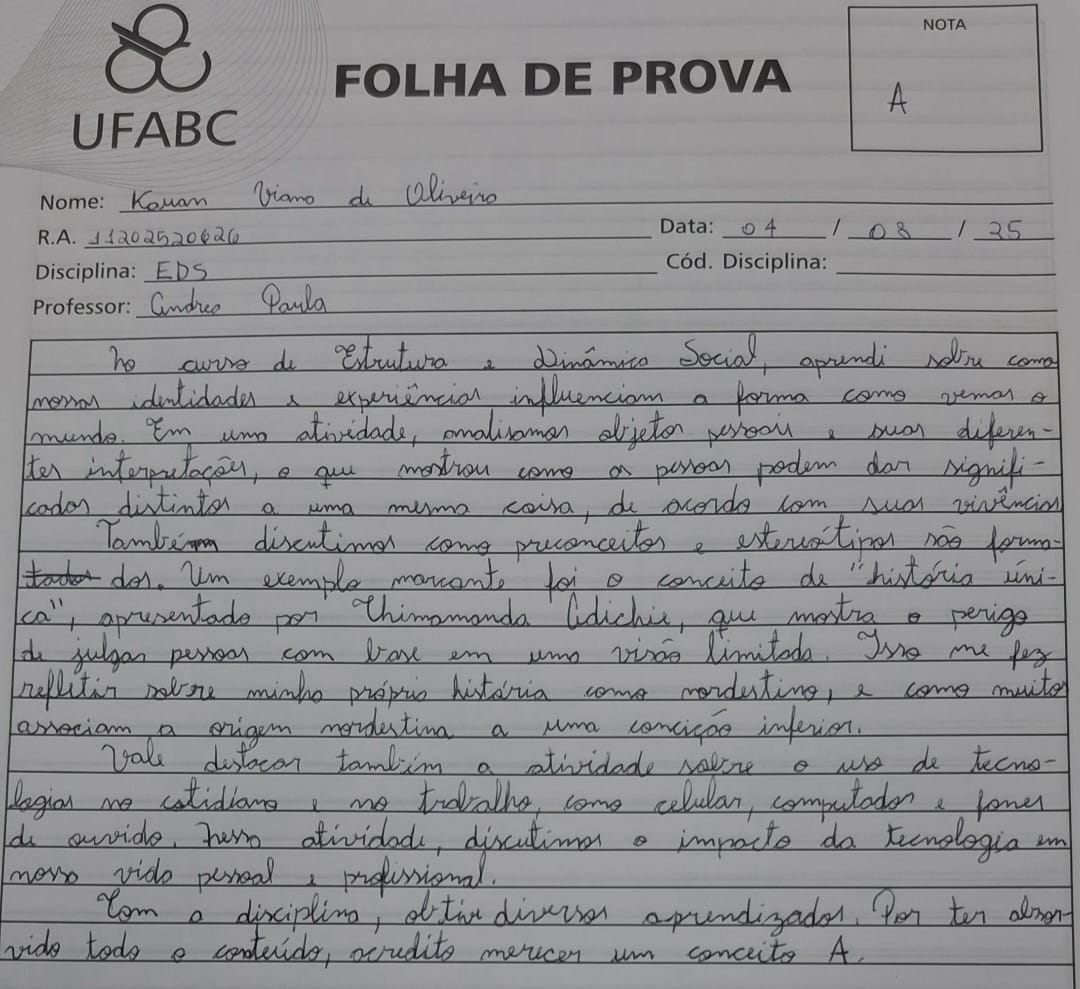 UFABC
FOLHA DE PROVA
NOTA
A
Nome: Kauan Viana de Oliveira
R.A. 11202520626
Data: 04 / 08 / 25
Disciplina: EDS
Cód. Disciplina:
Professor: Andrea Paula
No curso de Estrutura e Dinâmica Social, aprendi sobre como
nossas identidades e experiências influenciam a forma como vemos o
mundo. Em uma atividade, analisamos objetos pessoais e suas diferen-
tes interpretações, o que mostrou como as pessoas podem dar signifi-
cados distintos a uma mesma coisa, de acordo com suas vivências
Também discutimos como preconceitos e estereótipos são forma-
tados dos. Um exemplo marcante foi o conceito de "história úni-
ca", apresentado por Chimamanda Adichie, que mostra o perigo
de julgar pessoas com base em uma visão limitada. Isso me fez
refletir sobre minha própria história como nordestino, e como muitos
associam a origem nordestina a uma concição inferior.
Vale destacar também a atividade sobre o uso de tecno-
logias no cotidiano e no trabalho, como celular, computador e fones
de ouvido. Nessa atividade, discutimos o impacto da tecnologia em
nossa vida pessoal e profissional.
Com a disciplina, obtive diversos aprendizados. Por ter absor-
vido todo o conteúdo, acredito merecer um conceito A.